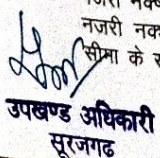 नजरी नक
सीमा के स
उपखण्ड अधिकारी
सूरजगढ